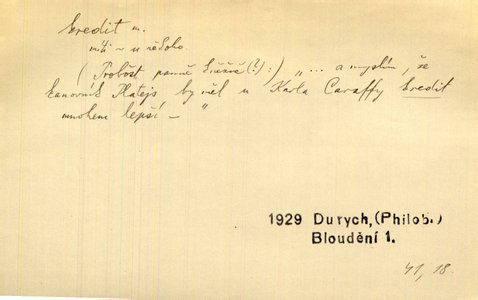 kredit m.
míti ~ u někoho
(Probošt panně (?):) „... a myslím, že
kanovník Platejs by měl u Karla Caraffy kredit
mnohem lepší – "
1929 Durych, (Philob.)
Bloudění 1.
41, 18.